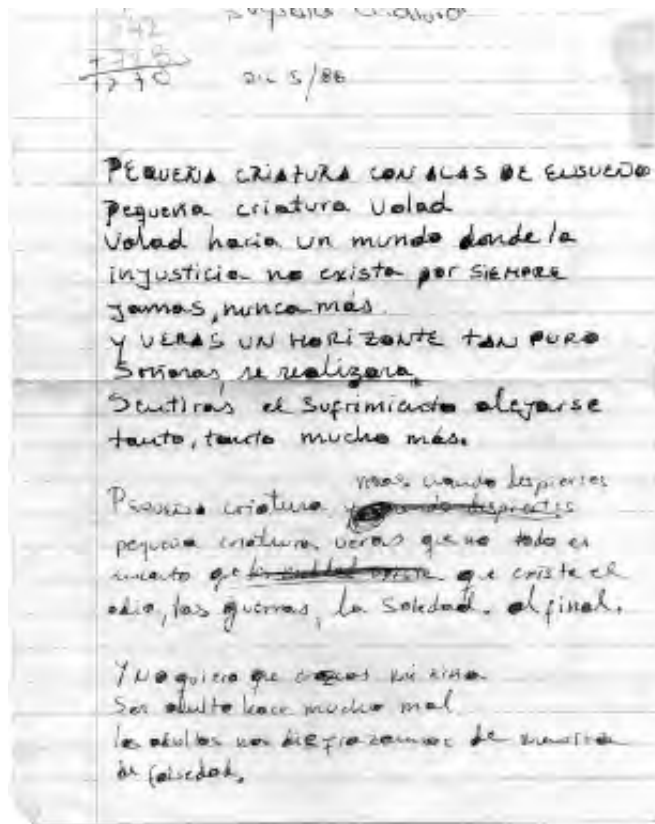 Pequeña Criatura
742
Dic 5/86
PEQUEÑA CRIATURA CON ALAS DE ENSUEÑO
pequeña criatura Volad
Volad hacia un mundo donde la
injusticia no exista por SIEMPRE
Jamas, nunca más.
Y VERAS UN HORIZONTE TAN PURO
Soñaras, se realizara,
Sentirás el sufrimiento alejarse
tanto, tanto mucho más.
veras cuando despiertes
Pequeña criatura
pequeña criatura veras que no todo es
que existe el
odio, las guerras, la Soledad. al final.
Y No quiero que crezcas mi
Ser adulto hace mucho mal
los adultos nos disfrazamos de
de falsedad.